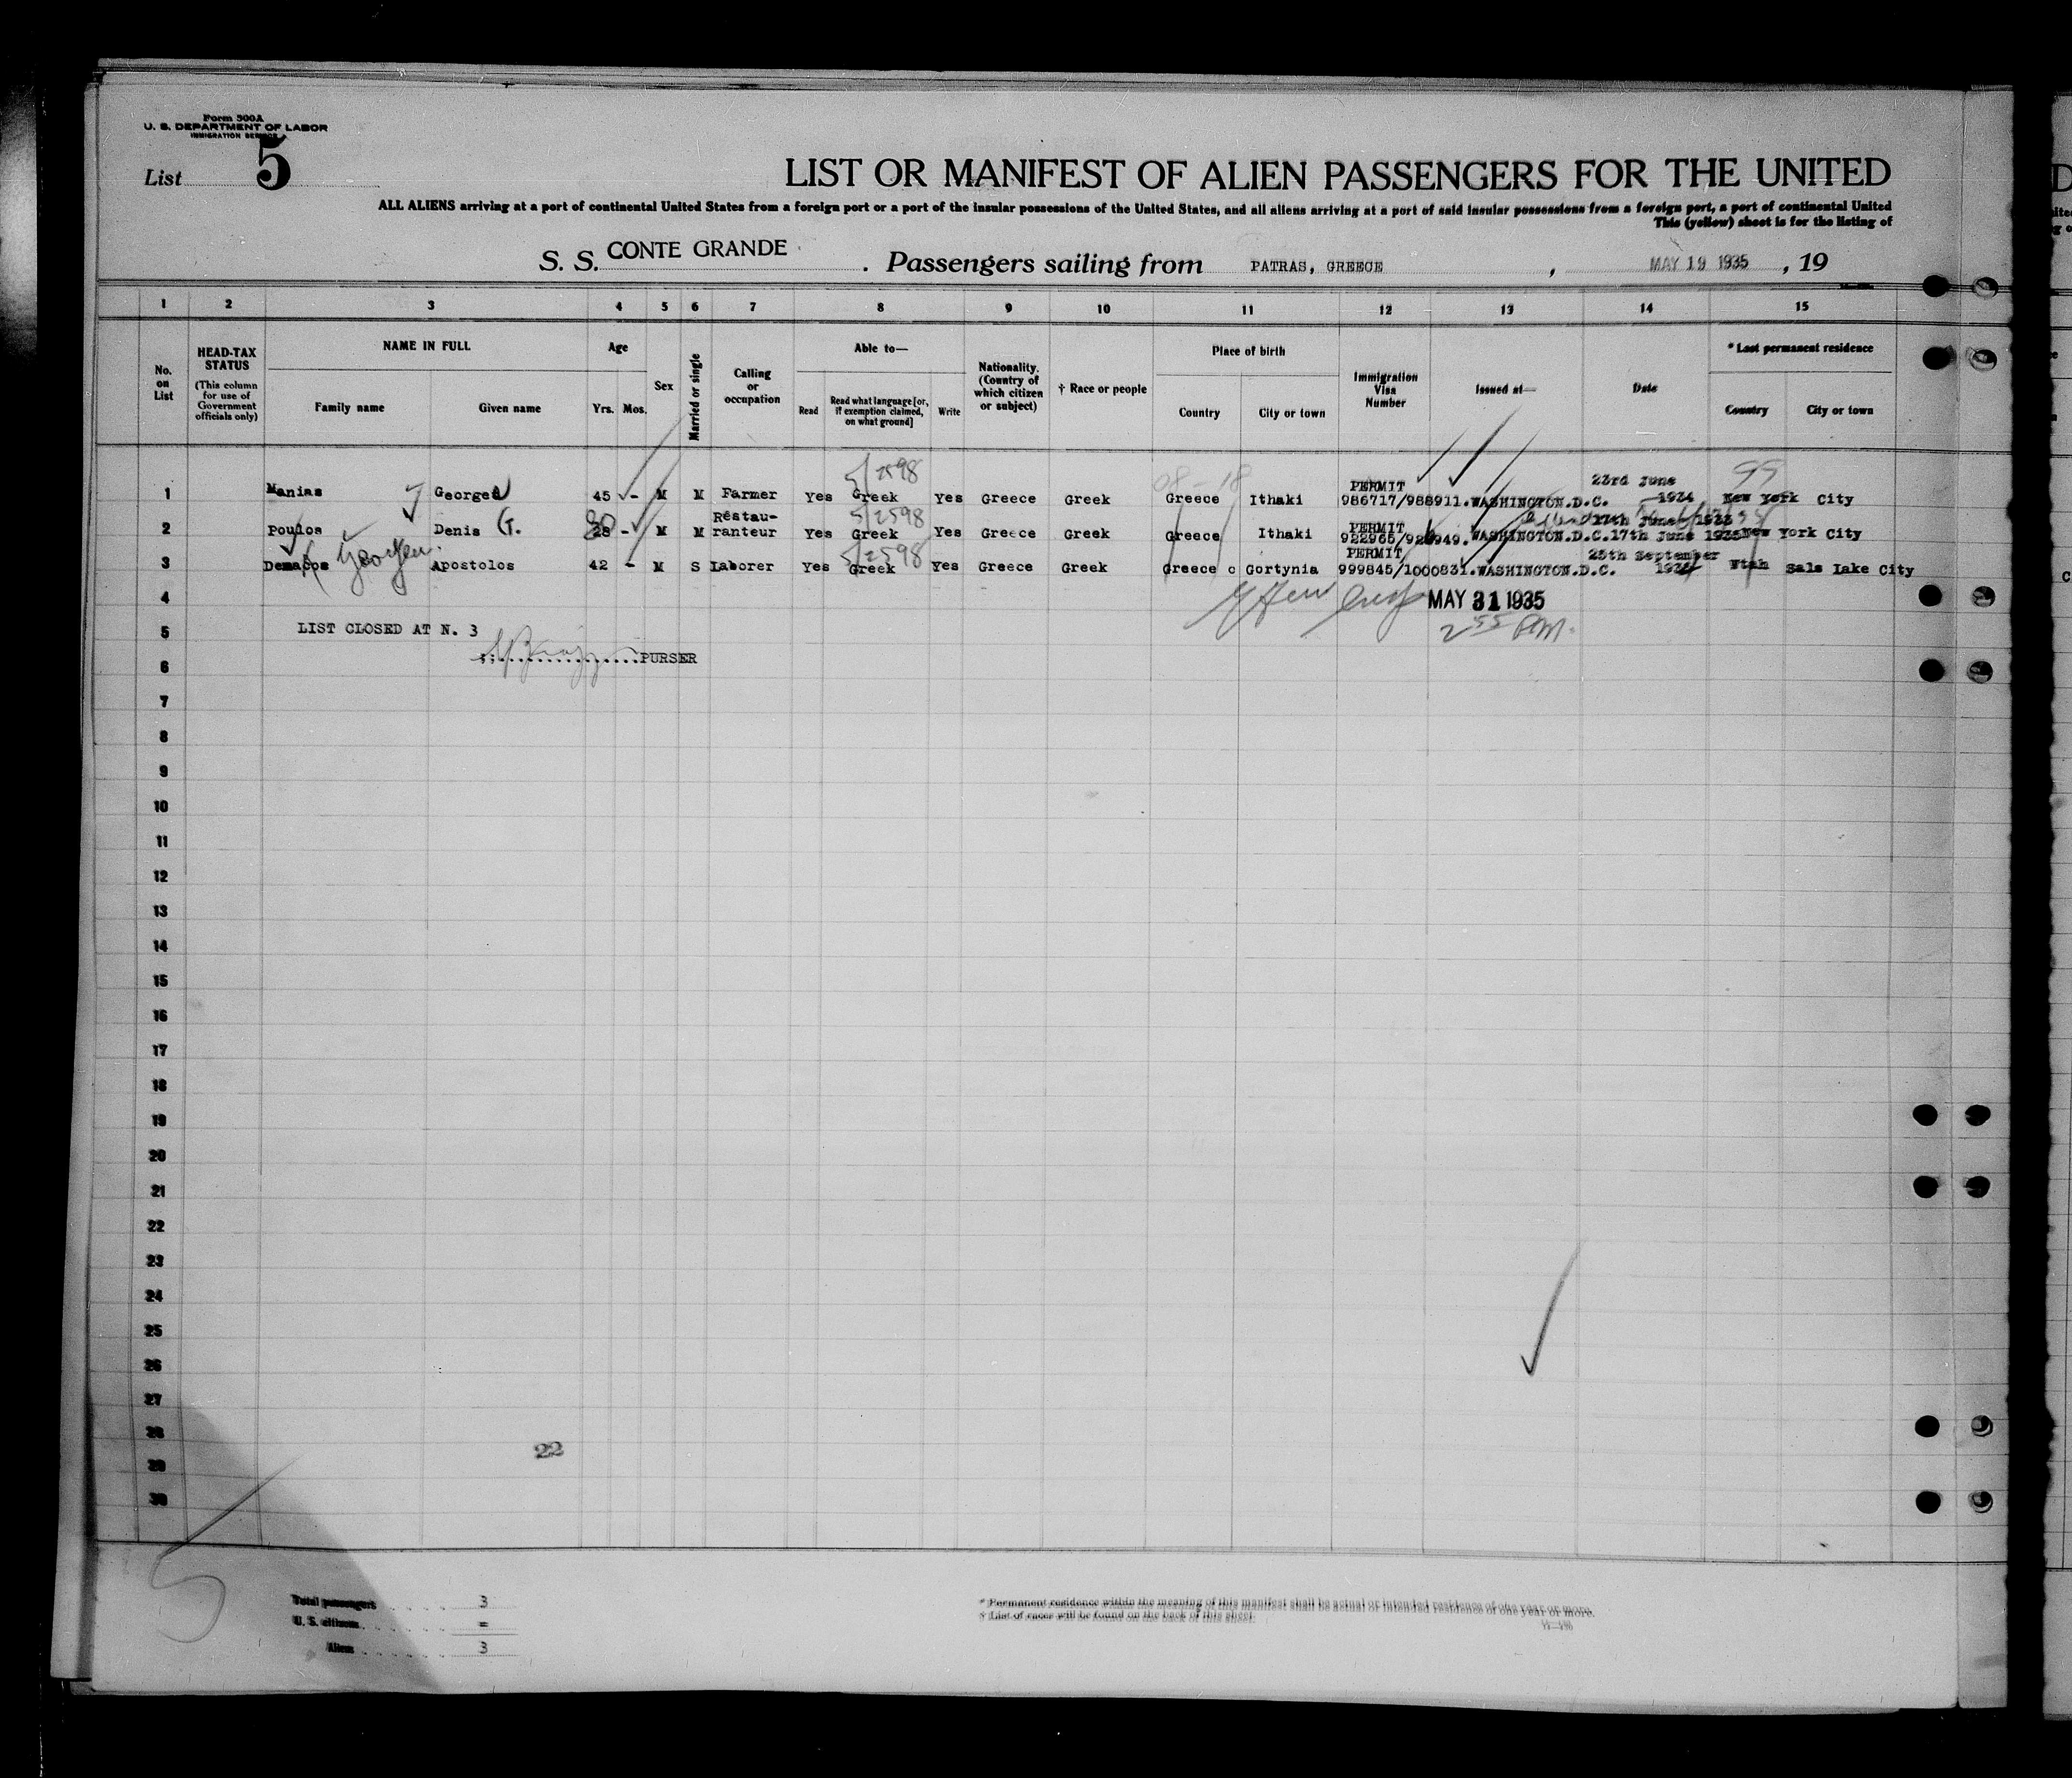 Form 500A
U. S. DEPARTMENT OF LABOR
IMMIGRATION SERVICE
List 5
LIST OR MANIFEST OF ALIEN PASSENGERS FOR THE UNITED
ALL ALIENS arriving at a port of continental United States from a foreign port or a port of the insular possessions of the United States, and all aliens arriving at a port of said insular possessions from a foreign port, a port of continental United
This (yellow) sheet is for the listing of
S. S. CONTE GRANDE . Passengers sailing from PATRAS, GREECE , MAY 19 1935 , 19
1 2 3 4 5 6 7 8 9 10 11 12 13 14 15
No. on List
HEAD-TAX STATUS
(This column for use of Government officials only)
NAME IN FULL
Family name Given name
Age
Yrs. Mos.
Sex
Married or single
Calling or occupation
Able to—
Read Read what language [or, if exemption claimed, on what ground] Write
Nationality. (Country of which citizen or subject)
† Race or people
Place of birth
Country City or town
Immigration Visa Number
Issued at—
Date
* Last permanent residence
Country City or town
5/2598
08-18
99
1 Manias George 45 - M M Farmer Yes Greek Yes Greece Greek Greece Ithaki PERMIT 986717/988911. WASHINGTON.D.C. 23rd June 1934 New York City
5/2598
2 Poulos Denis G. 28 - M M Restauranteur Yes Greek Yes Greece Greek Greece Ithaki PERMIT WASHINGTON.D.C. 17th June New York City
5/2598
3 Demacos Apostolos 42 - M S Laborer Yes Greek Yes Greece Greek Greece c Gortynia PERMIT 999845/1000831. WASHINGTON.D.C. 25th September Utah Sals Lake City
4 MAY 31 1935
5 LIST CLOSED AT N. 3
2 55 P.M.
6 PURSER
7
8
9
10
11
12
13
14
15
16
17
18
19
20
21
22
23
24
25
26
27
28
22
29
30
5
Total passengers 3
U. S. citizens =
Aliens 3
* Permanent residence within the meaning of this manifest shall be actual or intended residence of one year or more.
† List of races will be found on the back of this sheet.